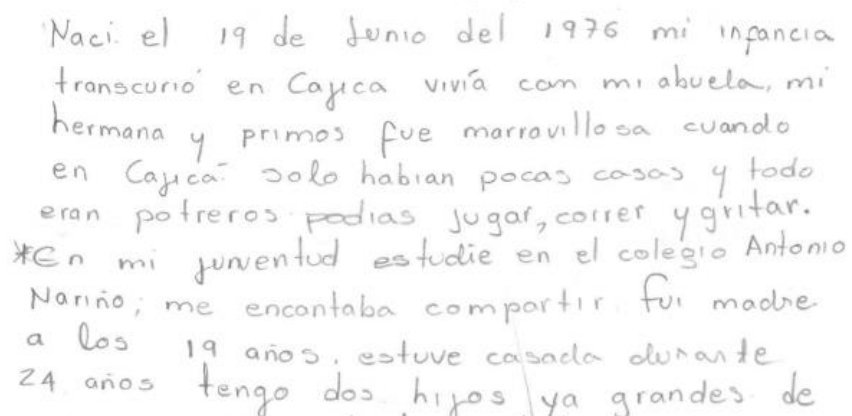 Naci el 19 de Junio del 1976 mi infancia
transcurió en Cajica vivía com mi abuela, mi
hermana y primos fue marravillosa cuando
en Cajica solo habian pocas casas y todo
eran potreros podias jugar, correr y gritar.
*En mi juventud estudie en el colegio Antonio
Nariño; me encantaba compartir. fui madre
a los 19 años, estuve casada durante
24 años tengo dos hijos ya grandes de